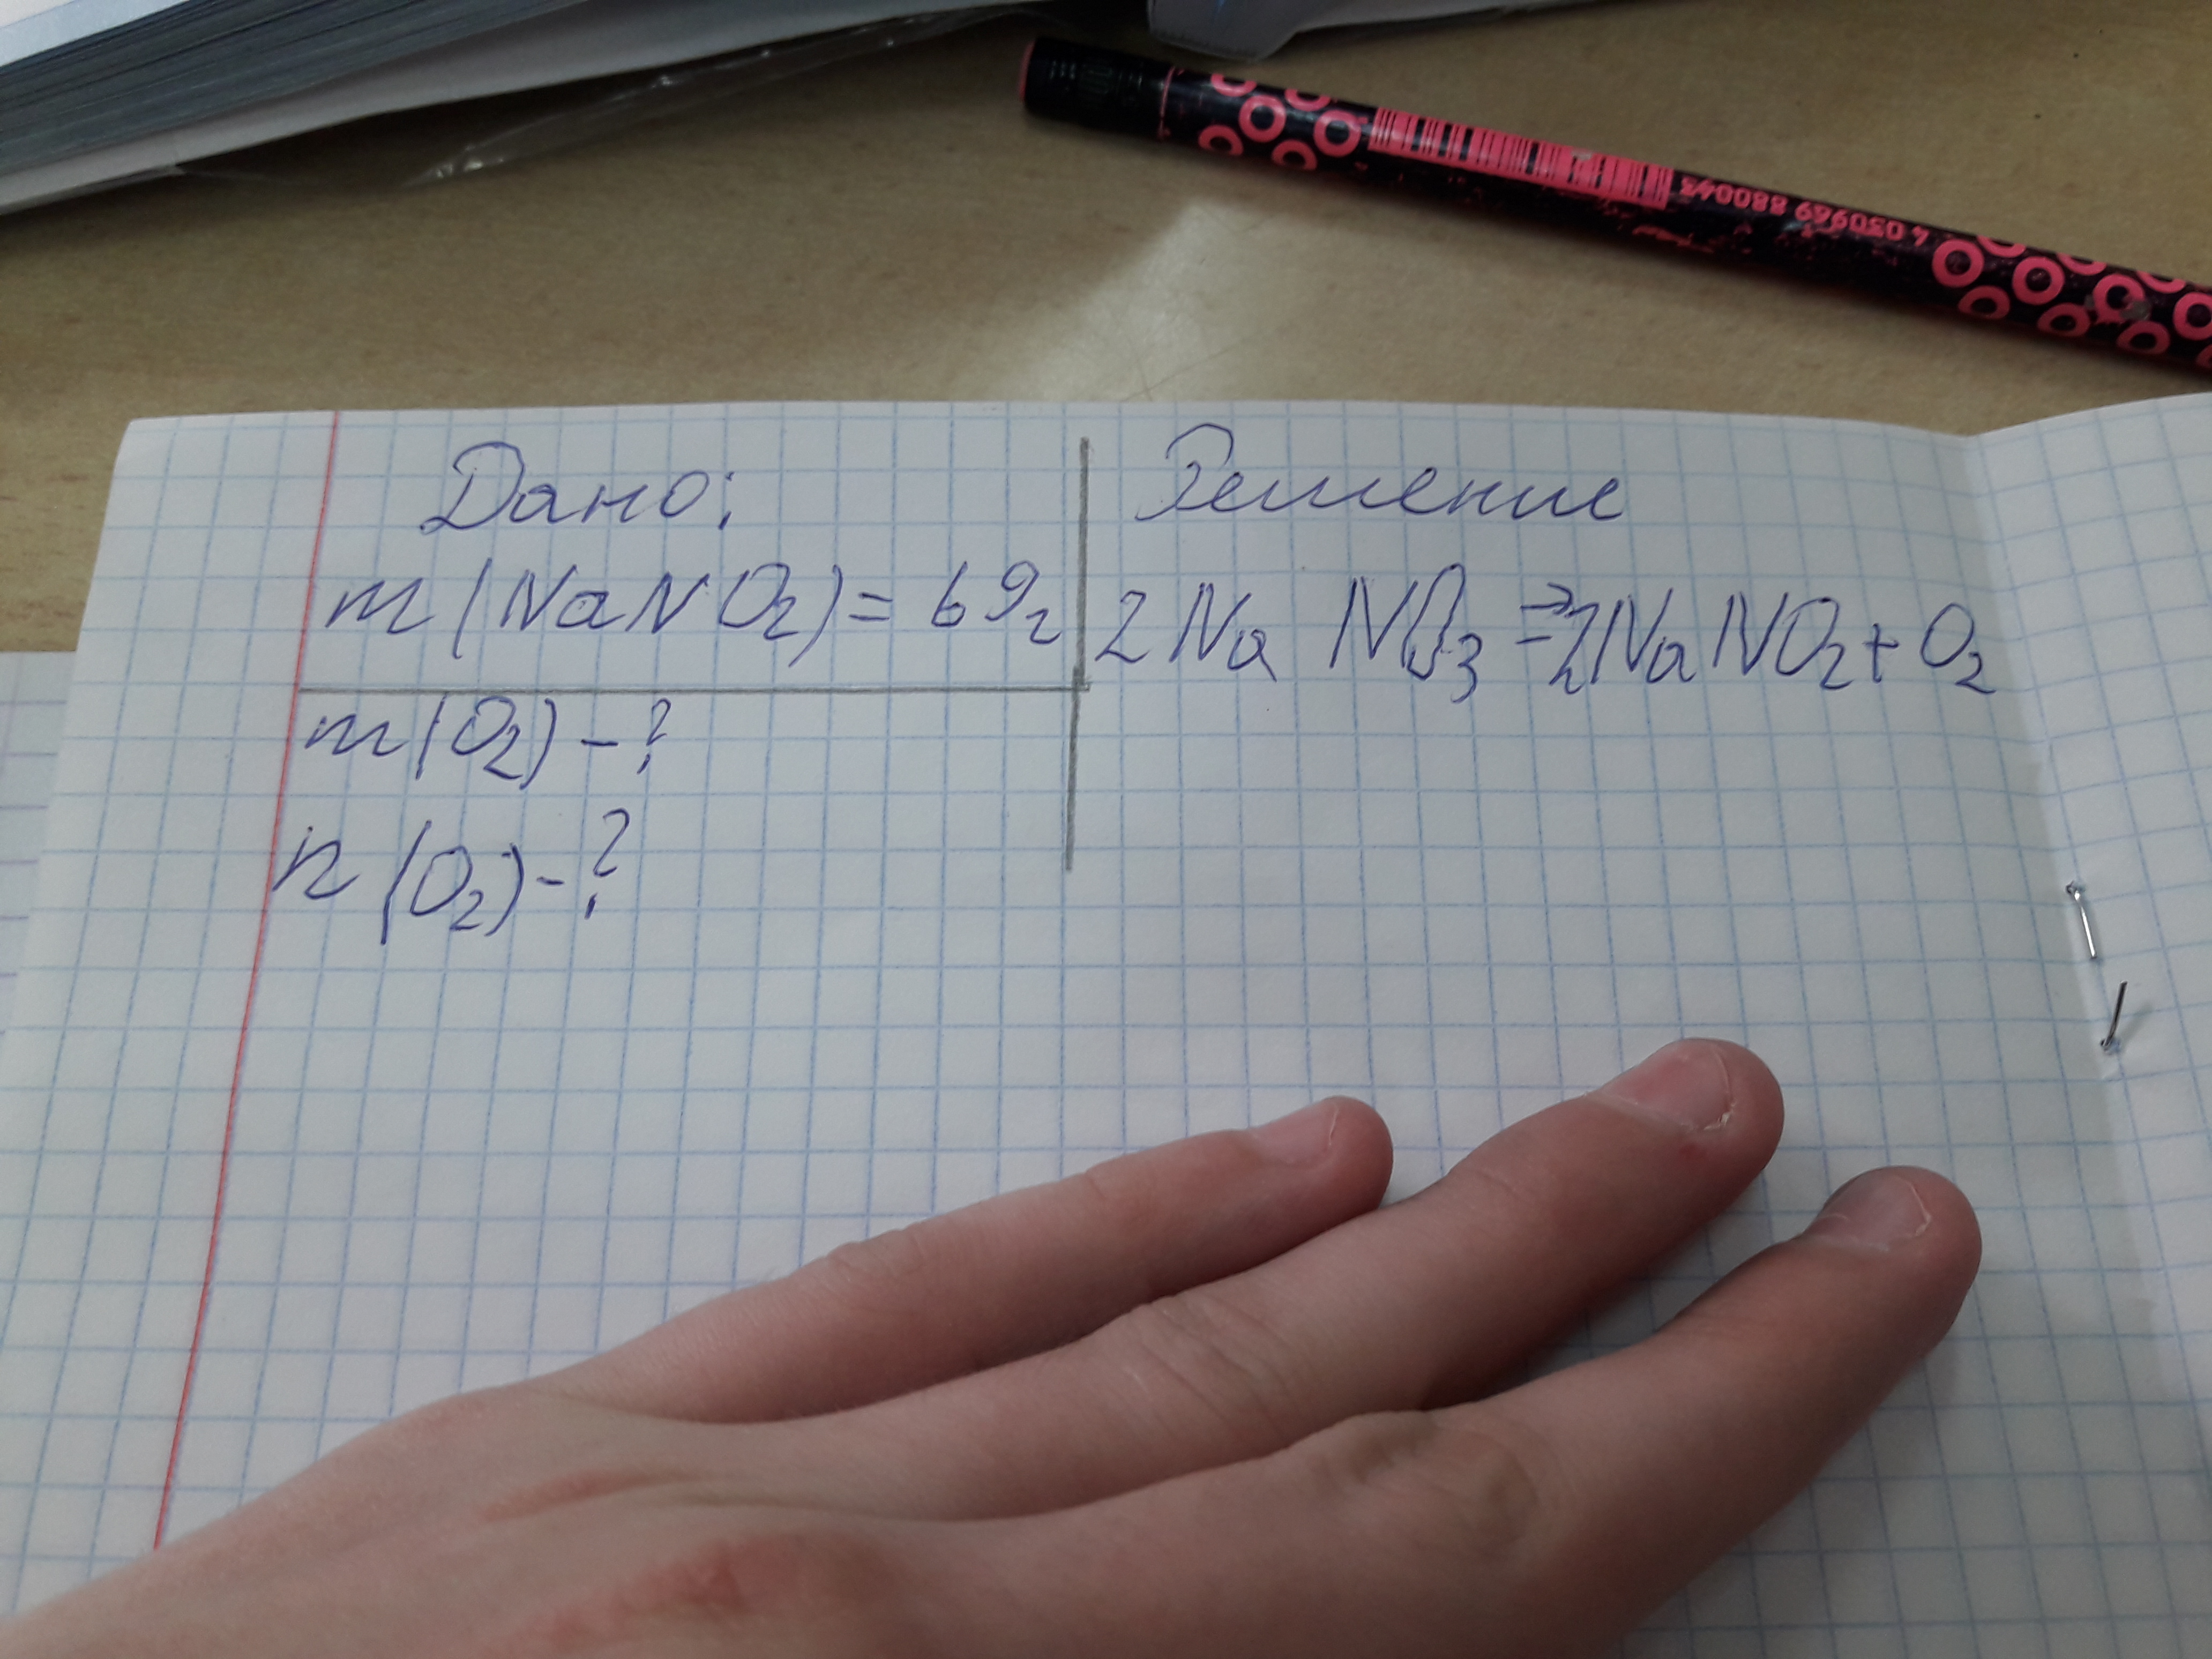 4 050969 880043
Дано:
m(NaNO₂)=69г
m(O₂)-?
n(O₂)-?
Решение
2NaNO₃ ⇒ 2NaNO₂+O₂